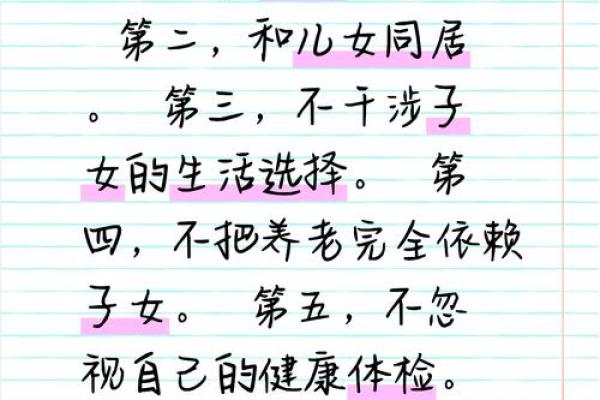 第二，和儿女同居
。 第三，不干涉子
女的生活选择。 第
四，不把养老完全依赖
子女。 第五，不忽
视自己的健康体检。